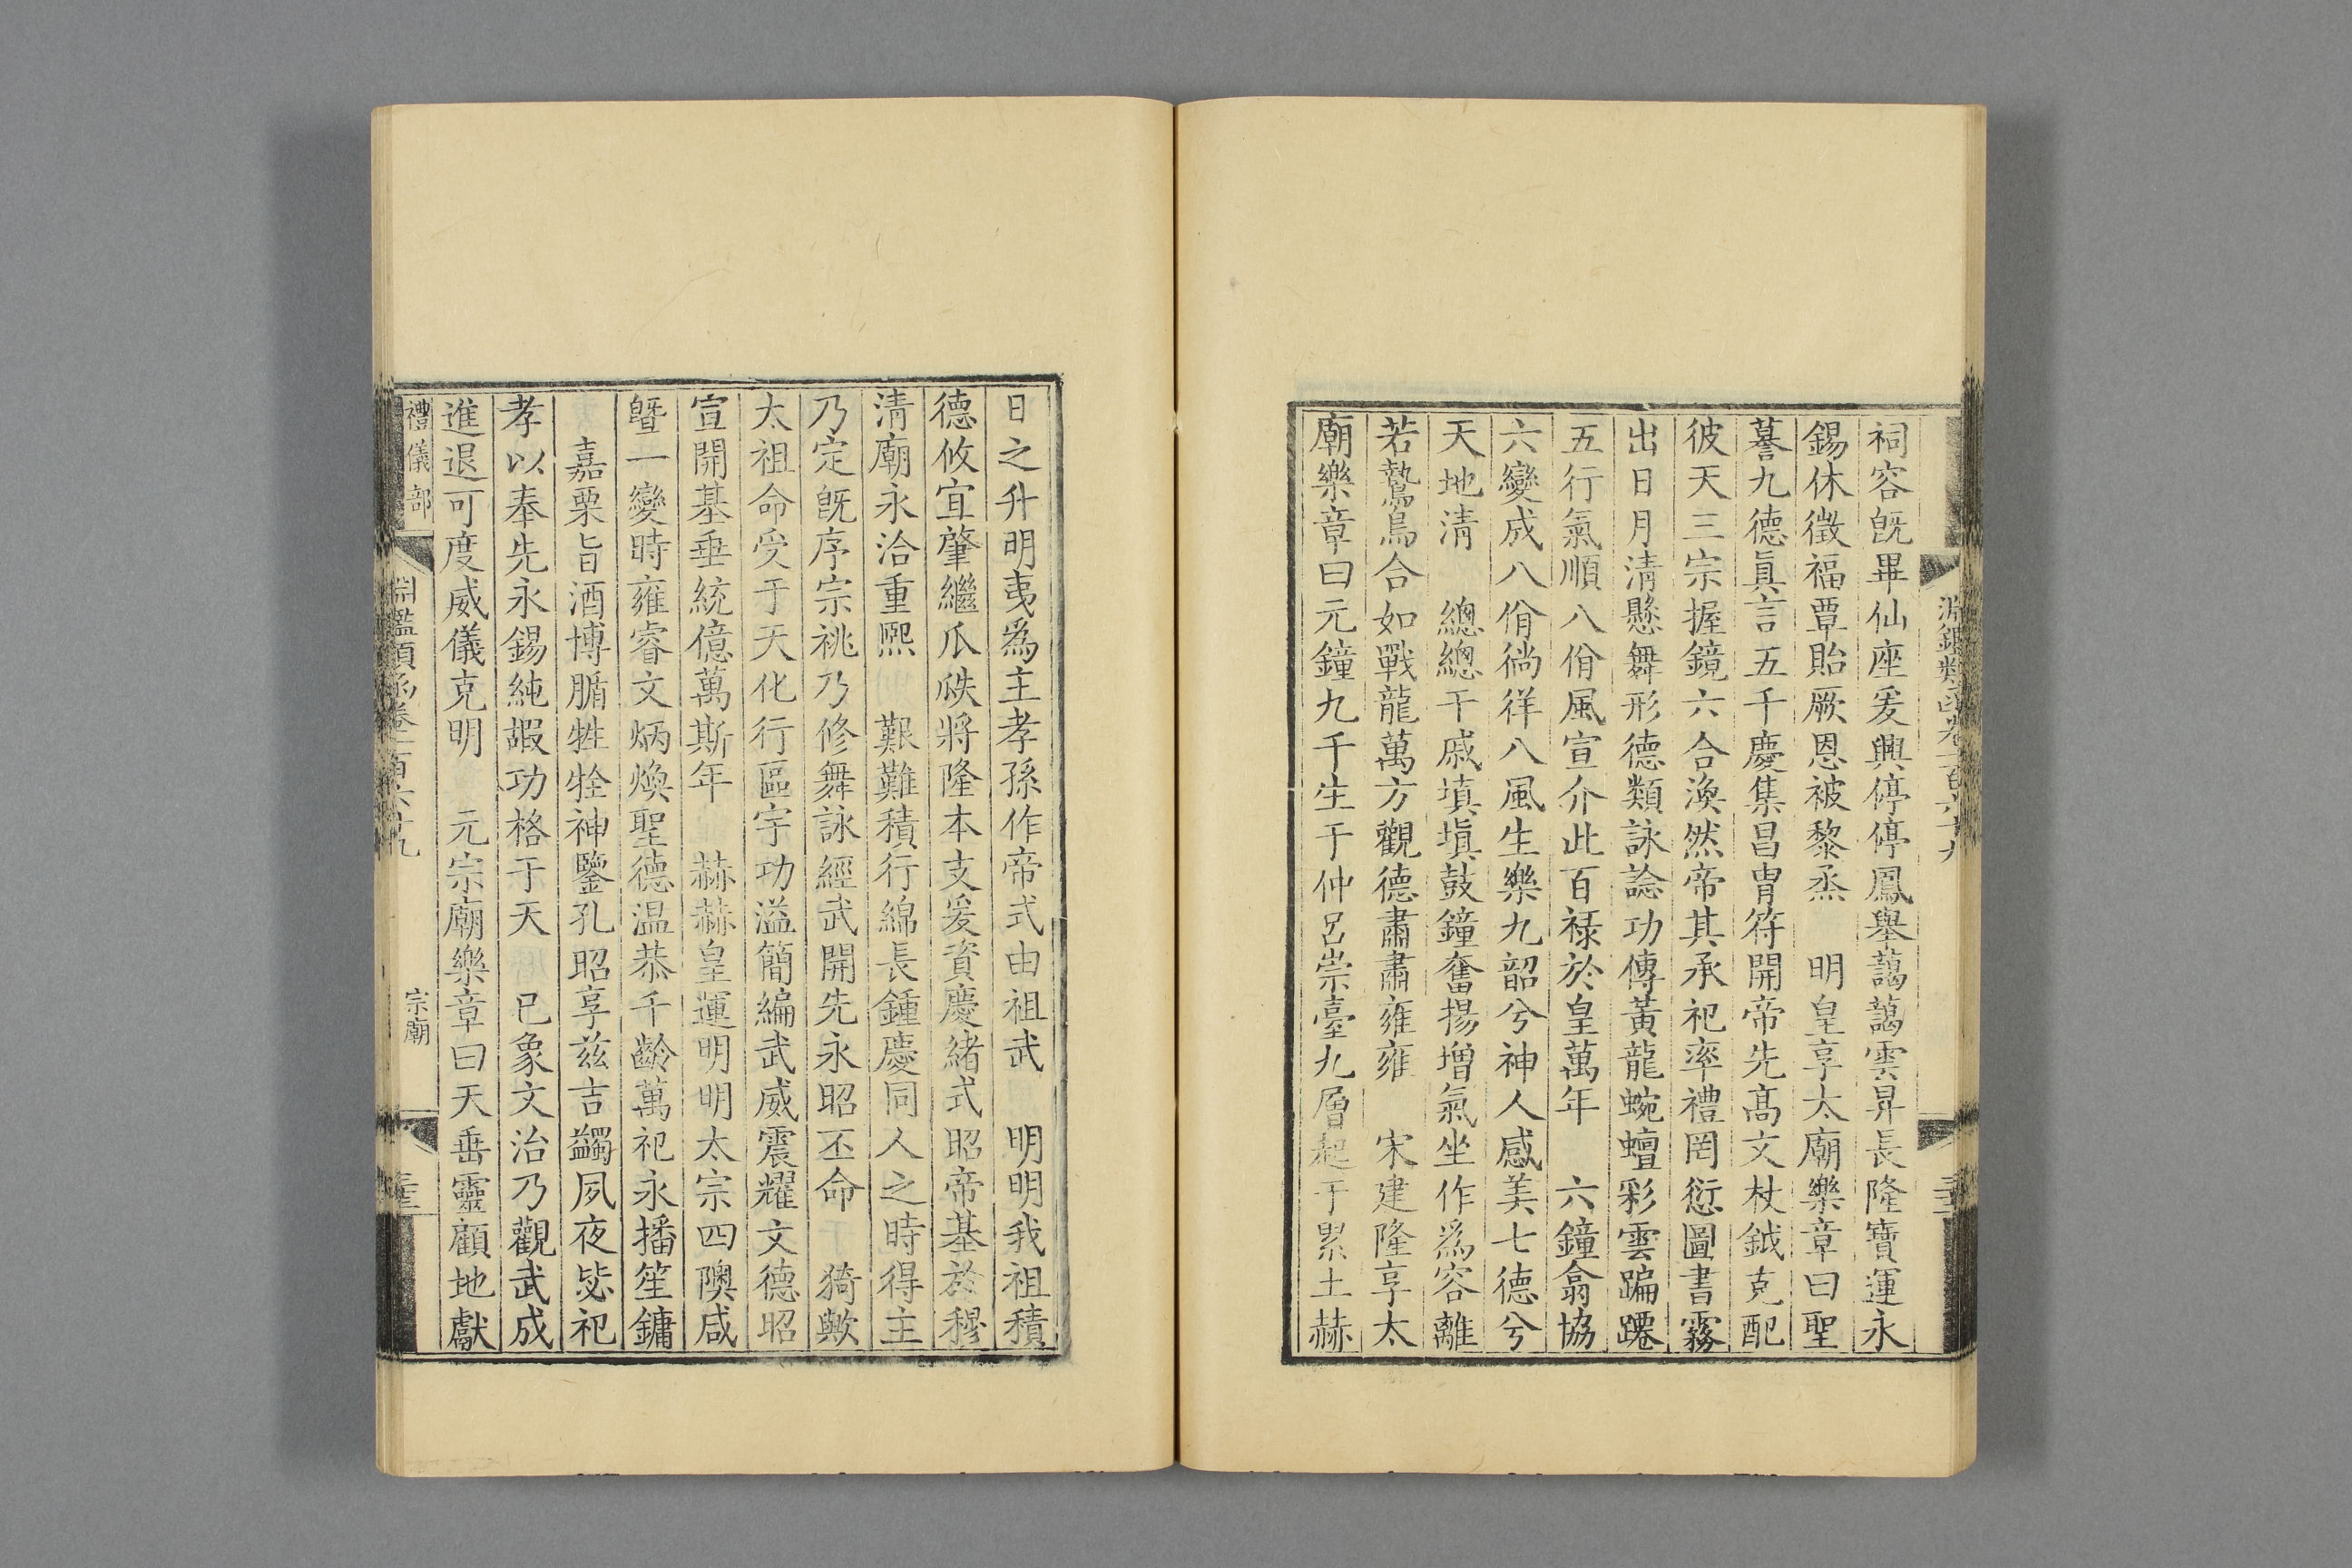 祠容旣畢仙座爰興停停鳳舉藹藹雲昇長隆寶運永
錫休徵福覃貽厥恩被黎烝　明皇享太廟樂章曰聖
謩九德眞言五千慶集昌胄符開帝先高文杖鉞克配
彼天三宗握鏡六合渙然帝其承祀率禮罔愆圖書霧
出日月清懸舞形德類詠諗功傳黃龍蜿蟺彩雲蹁躚
五行氣順八佾風宣介此百祿於皇萬年　六鐘翕協
六變成八佾徜徉八風生樂九韶兮神人感美七德兮
天地清　總總干戚塡塡鼓鐘奮揚增氣坐作爲容離
若鷙鳥合如戰龍萬方觀德肅肅雍雍　宋建隆享太
廟樂章曰元鐘九千生于仲呂崇臺九層起于累土赫
日之升明夷爲主孝孫作帝式由祖武　明明我祖積
德攸宜肇繼瓜瓞將隆本支爰資慶緒式昭帝基於穆
清廟永洽重熙　艱難積行綿長鍾慶同人之時得主
乃定旣序宗祧乃修舞詠經武開先永昭丕命　猗歟
太祖命受于天化行區宇功溢簡編武威震耀文德昭
宣開基垂統億萬斯年　赫赫皇運明明太宗四隩咸
曁一變時雍睿文炳煥聖德温恭千齡萬祀永播笙鏞
嘉栗旨酒博腯牲牷神鑒孔昭享茲吉蠲夙夜毖祀
孝以奉先永錫純嘏功格于天　已象文治乃觀武成
進退可度威儀克明　元宗廟樂章曰天垂靈顧地獻
禮儀部
淵鑑類函卷一百六十九
宗廟